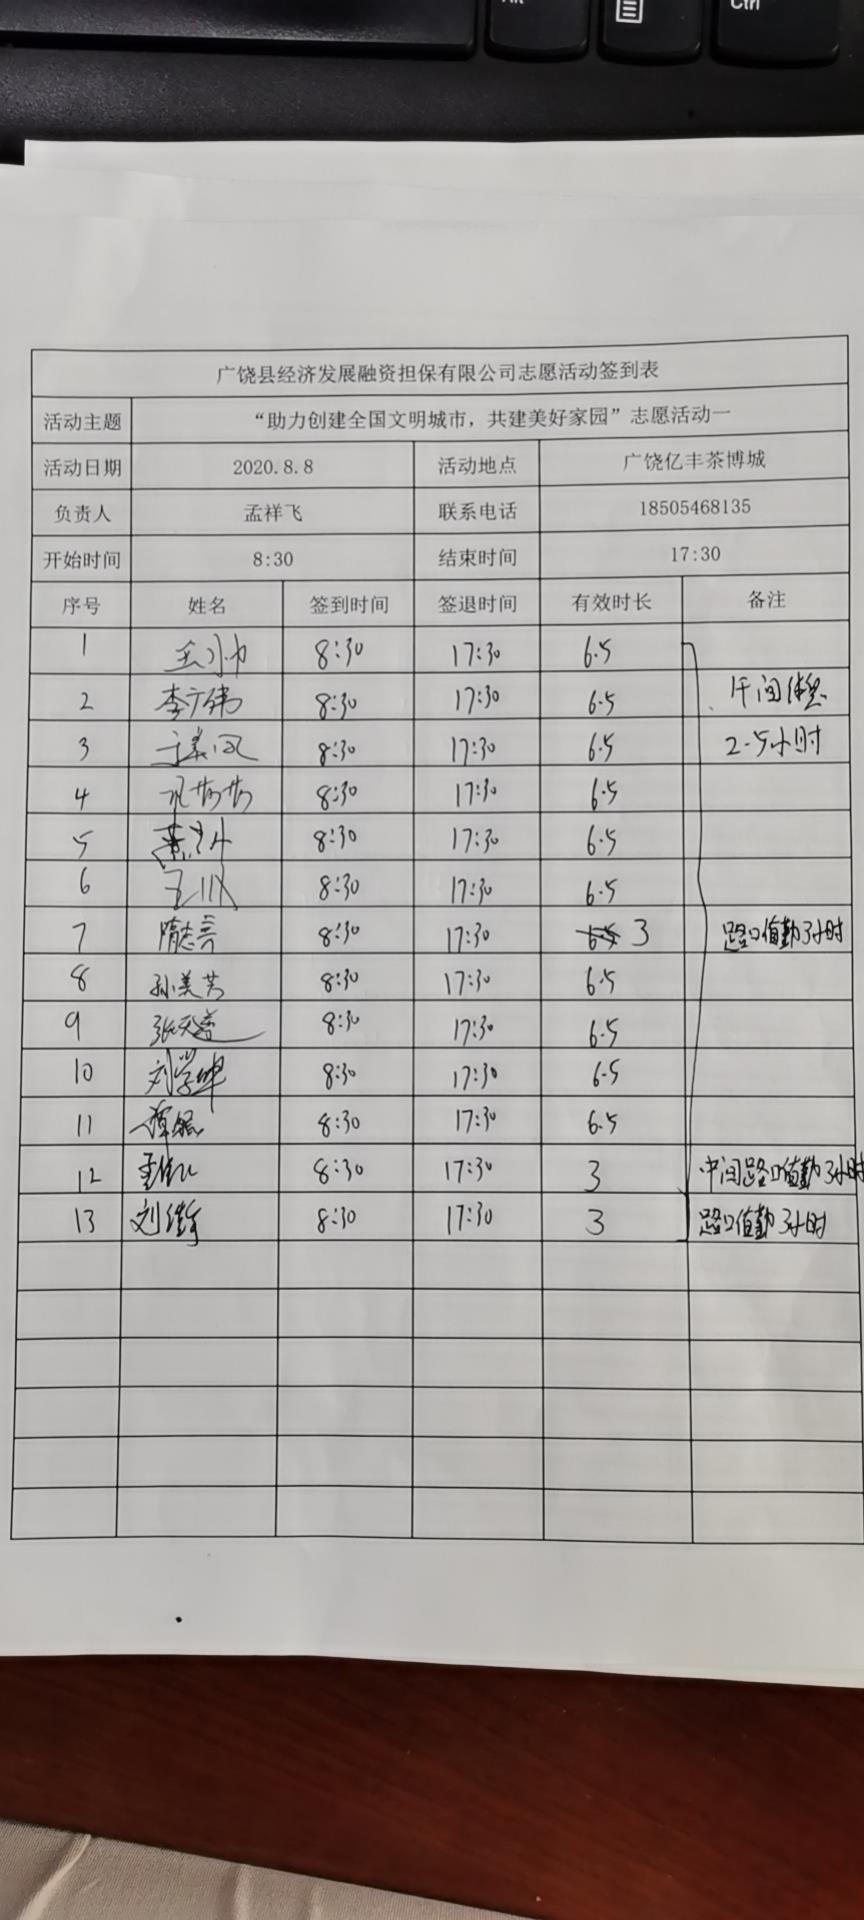 Alt
Ctrl
广饶县经济发展融资担保有限公司志愿活动签到表
活动主题 “助力创建全国文明城市，共建美好家园”志愿活动一
活动日期 2020.8.8 活动地点 广饶亿丰茶博城
负责人 孟祥飞 联系电话 18505468135
开始时间 8:30 结束时间 17:30
序号 姓名 签到时间 签退时间 有效时长 备注
1 王小帅 8:30 17:30 6.5
2 李广伟 8:30 17:30 6.5 午间休息
3 8:30 17:30 6.5 2.5小时
4 8:30 17:30 6.5
5 8:30 17:30 6.5
6 8:30 17:30 6.5
7 隋志亮 8:30 17:30 3 路口值勤3小时
8 孙美芳 8:30 17:30 6.5
9 8:30 17:30 6.5
10 刘学坤 8:30 17:30 6.5
11 8:30 17:30 6.5
12 8:30 17:30 3 中间路口值勤3小时
13 8:30 17:30 3 路口值勤3小时